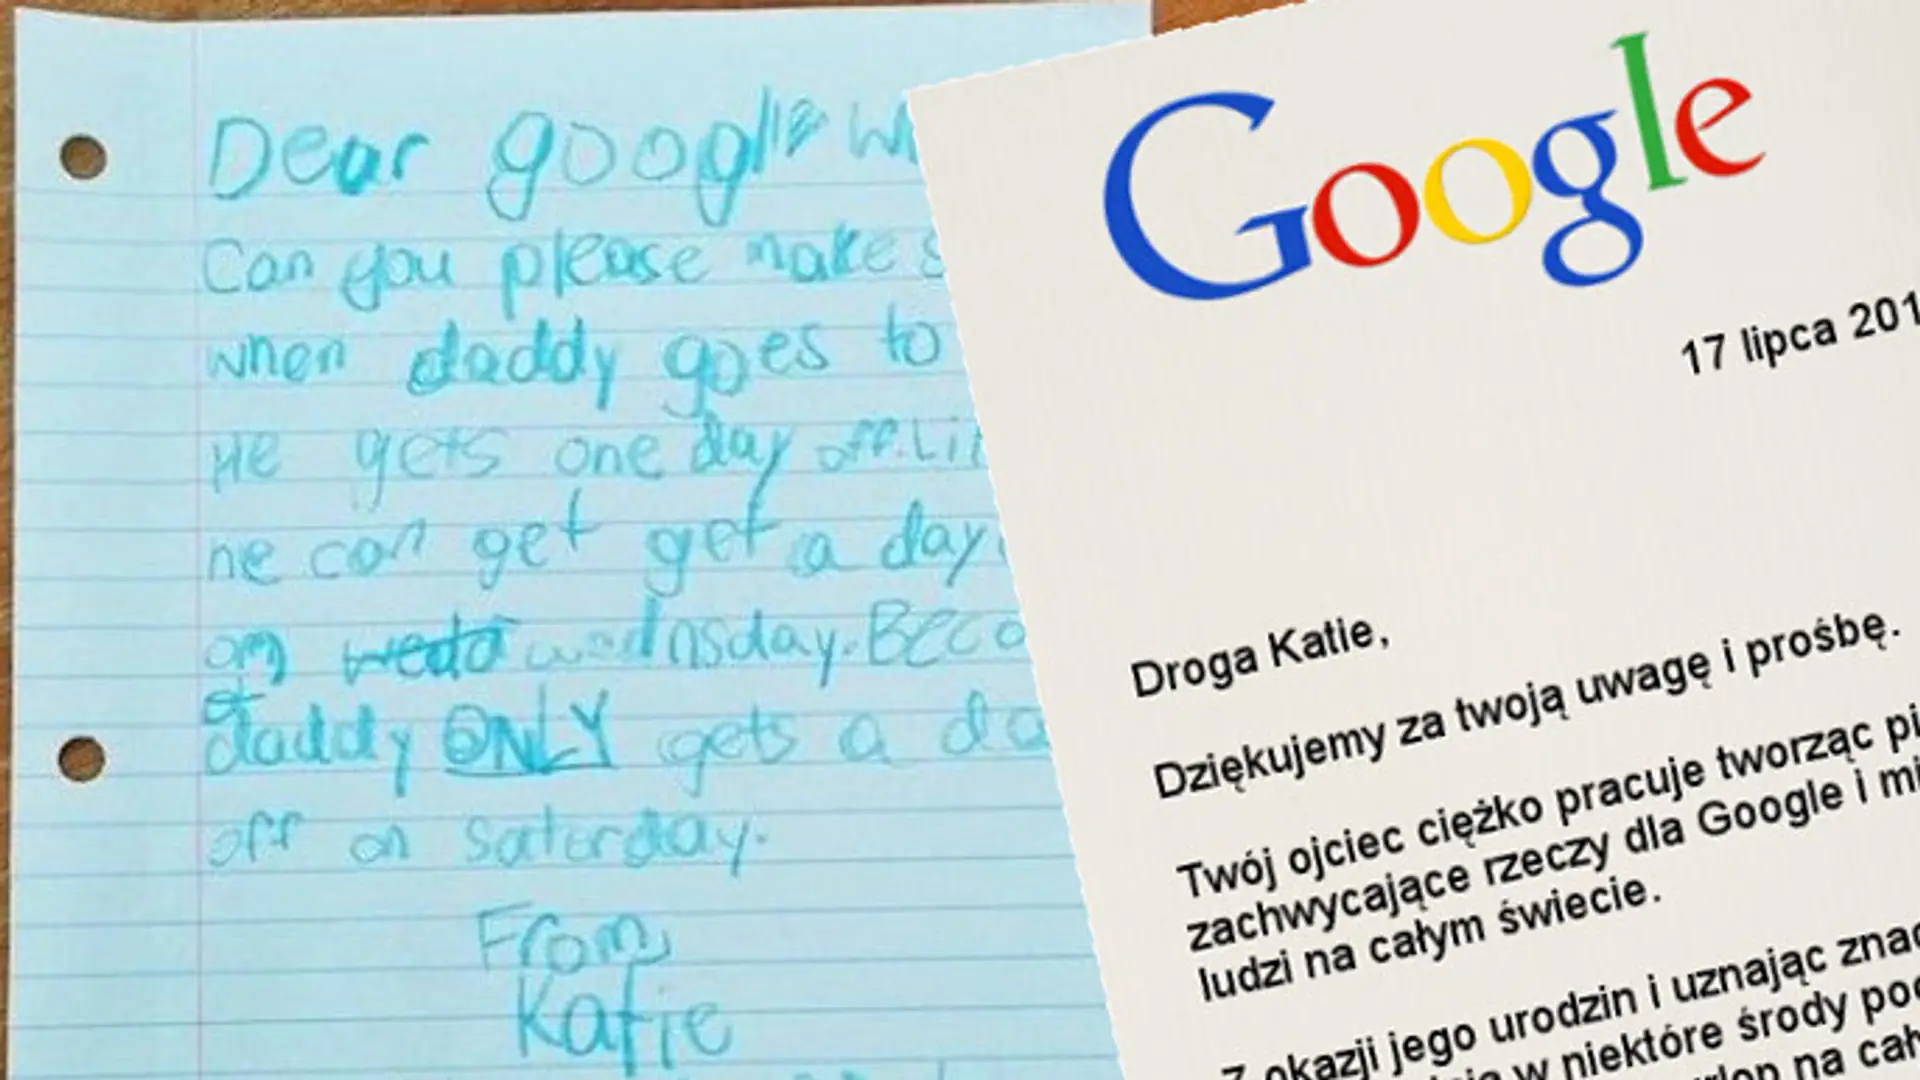 Dear google w
Can you please make s
when daddy goes to
He gets one day off. Li
he can get get a day
on wednsday. Beco
daddy ONLY gets a da
off on Saturday.
From
Katie
Google
17 lipca 201
Droga Katie,
Dziękujemy za twoją uwagę i prośbę.
Twój ojciec ciężko pracuje tworząc pi
zachwycające rzeczy dla Google i mi
ludzi na całym świecie.
Z okazji jego urodzin i uznając znac
w niektóre środy
na cał